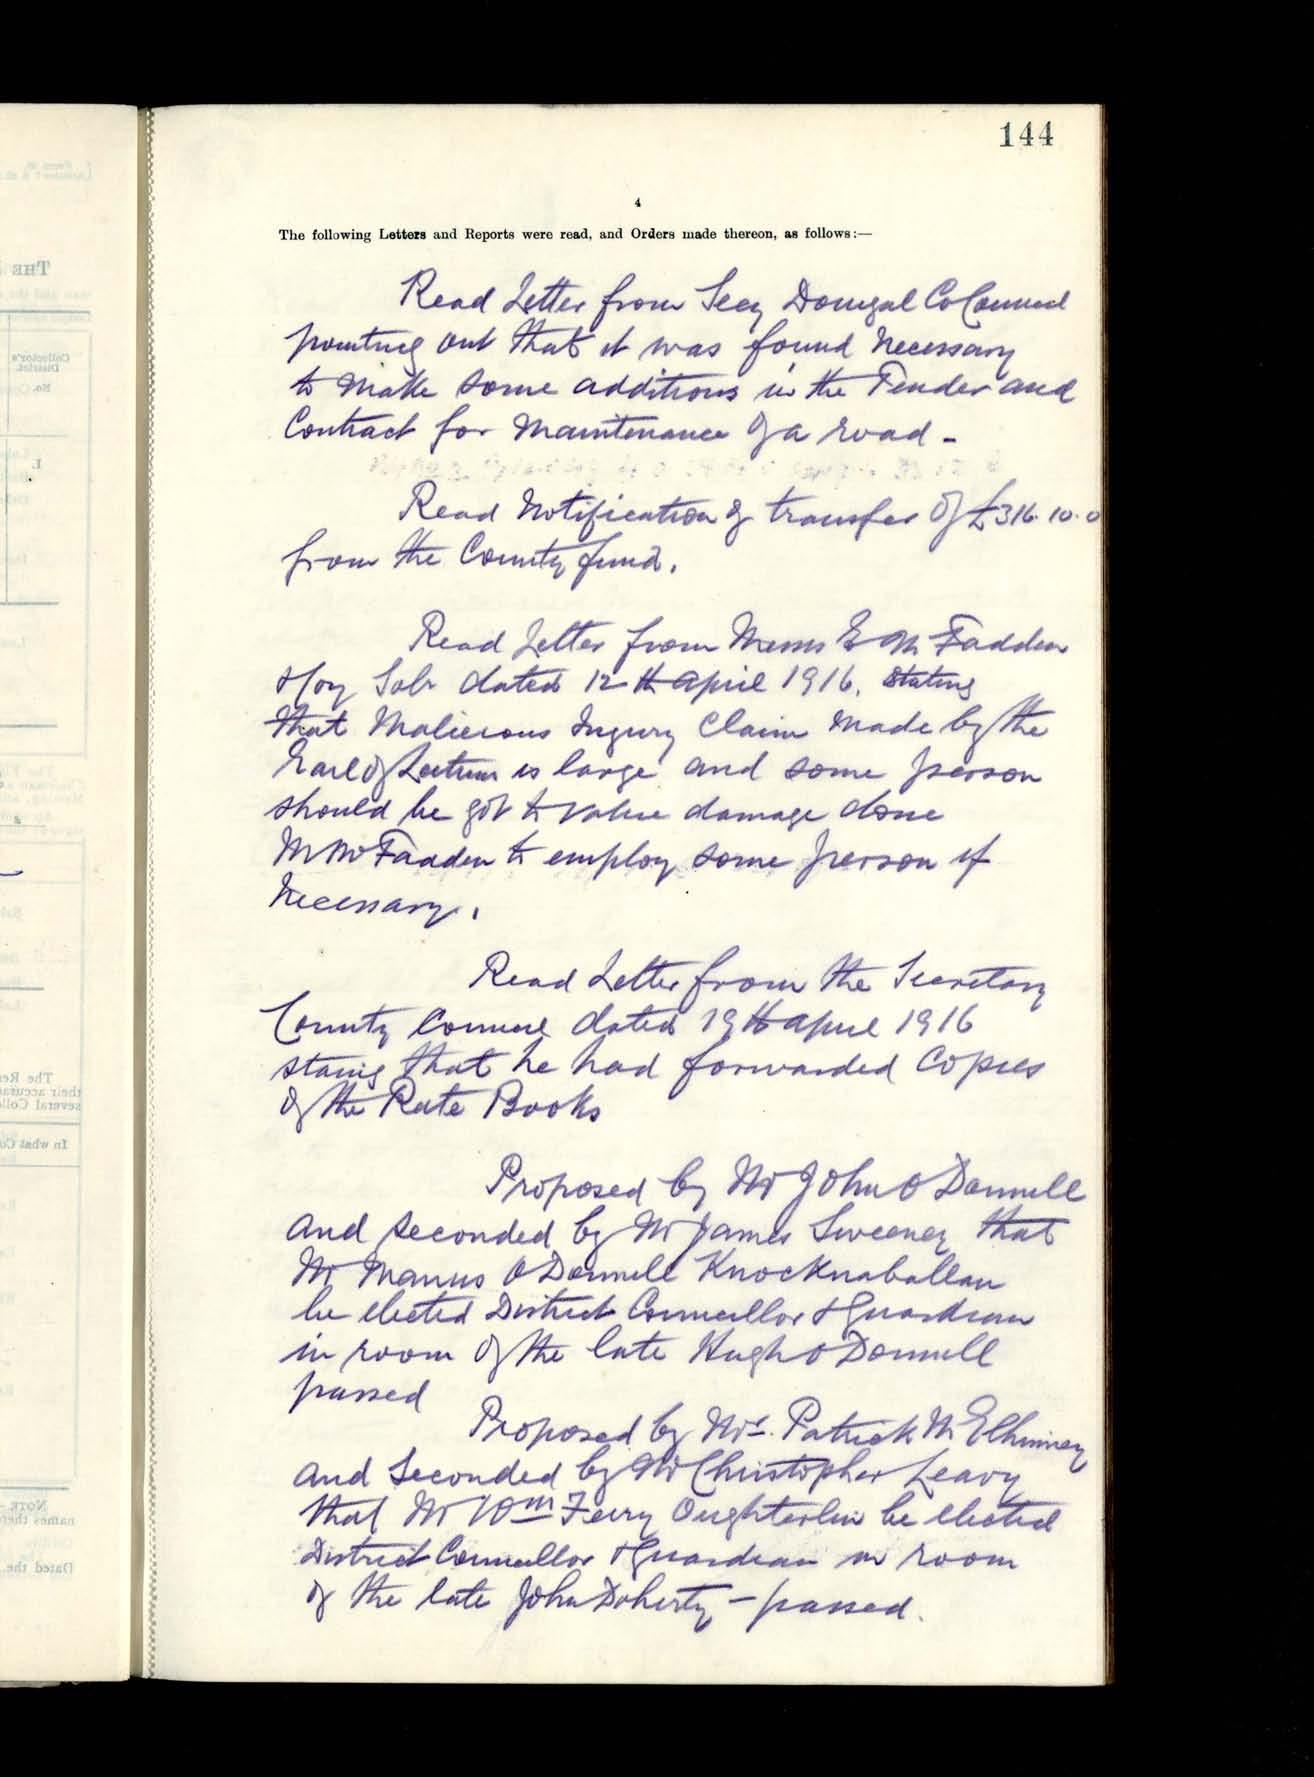 144
4
The following Letters and Reports were read, and Orders made thereon, as follows:—
Read Letter from Secy Donegal Co Council
pointing out that it was found necessary
to make some additions in the Tender and
Contract for Maintenance of a road -
Read Notification of transfer of £316.10.0
from the County fund.
Read Letter from Messrs E McFadden
Solr dated 12th April 1916. Stating
that Malicious Injury Claim made by the
Earl of Leitrim is large and some person
should be got to value damage done
Mr McFadden to employ some person if
necessary.
Read Letter from the Secretary
County Council dated 19th April 1916
staing that he had forwarded copies
of the Rate Books
Proposed by Mr John O Donnell
and seconded by Mr James Sweeney that
Mr Manus O Donnell Knocknaballan
be elected District Councillor & Guardian
in room of the late Hugh O Donnell
passed
Proposed by Mr. Patrick McElhinney
and Seconded by Mr Christopher Leavy
that Mr Wm Ferry Oughterlin be elected
District Councillor & Guardian in room
of the late John Doherty - passed.